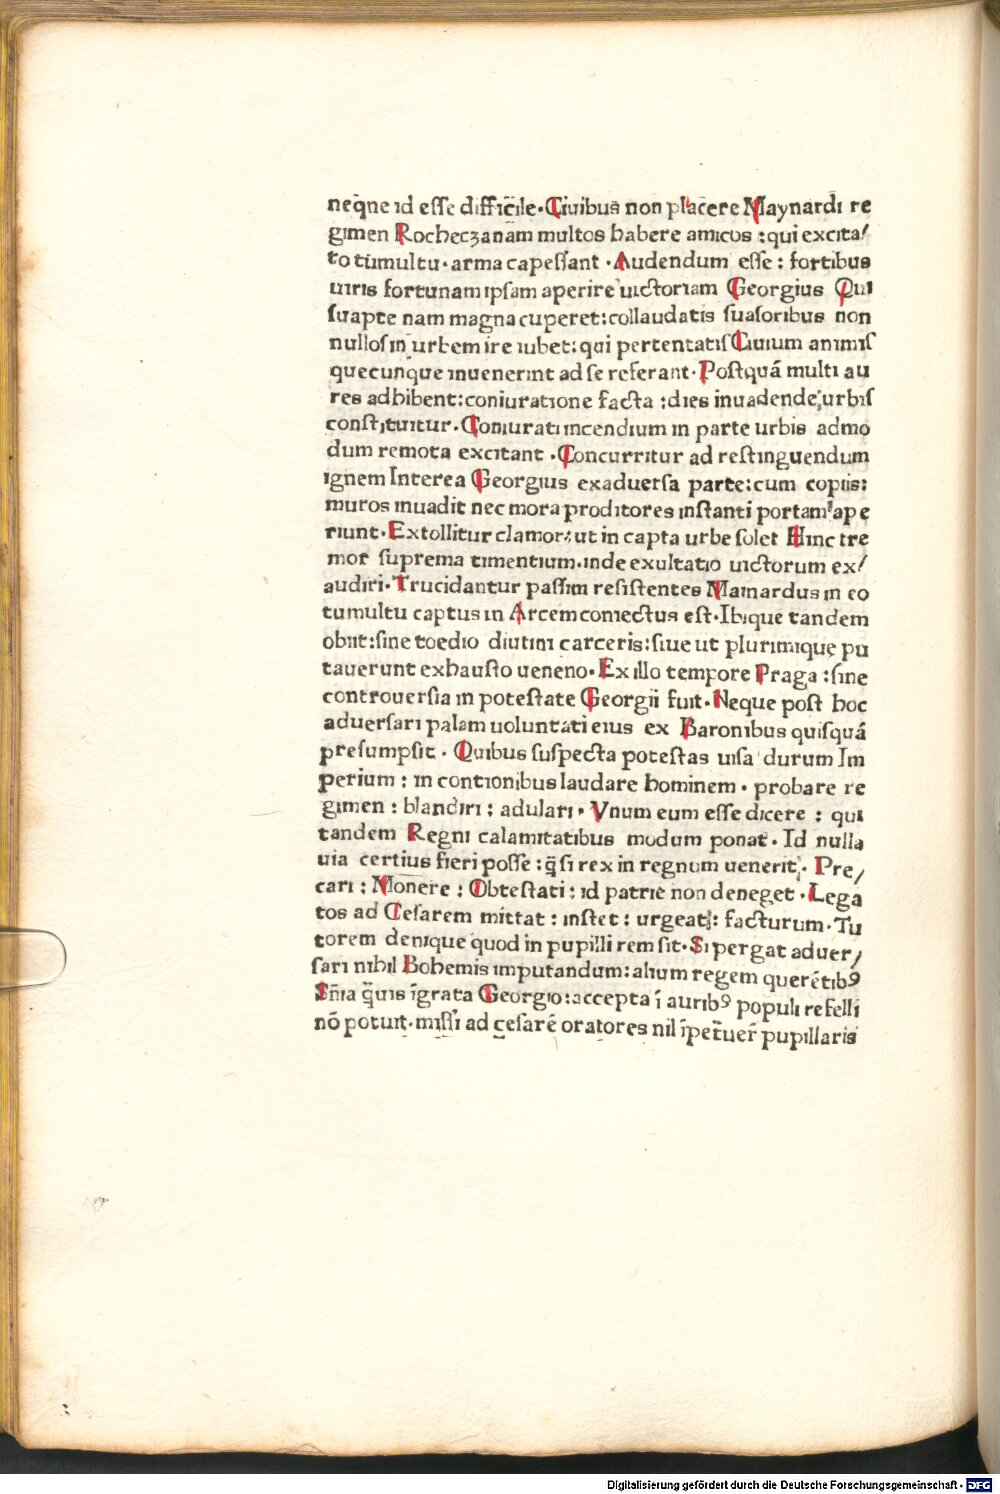 neq̃ne id eſſe difficile·Ciuibus non placere Maynardi re
gimen Rocheczanam multos habere amicos :qui excita/
to tumultu·arma capeſſant ·Audendum eſſe: fortibus
uiris fortunam ipſam aperire uictoriam Georgius Qui
ſuapte nam magna cuperet:collaudatis ſuaſoribus non
nulloſ in urbem ire iubet:qui pertentatiſ Ciuium animiſ
quecunque inuenerint ad ſe referant·Poſtquã multi au
res adhibent:coniuratione facta :dies inuadende urbiſ
conſtituitur·Coniurati incendium in parte urbis admo
dum remota excitant ·Concurritur ad reſtinguendum
ignem Interea Georgius exaduerſa parte:cum copiis:
muros inuadit nec mora proditores inſtanti portam ape
riunt·Extollitur clamor:ut in capta urbe ſolet Hinc tre
mor ſuprema timentium·inde exultatio uictorum ex/
audiri·Trucidantur paſſim reſiſtentes Mainardus in eo
tumultu captus in Arcem coniectus eſt·Ibique tandem
obiit:ſine toedio diutini carceris:ſiue ut plurimique pu
tauerunt exhauſto ueneno·Ex illo tempore Praga :ſine
controuerſia in poteſtate Georgii fuit·Neque poſt hoc
aduerſari palam uoluntati eius ex Baronibus quiſquã
preſumpſit · Quibus ſuſpecta poteſtas uiſa durum Im
perium : in contionibus laudare hominem · probare re
gimen : blandiri : adulari · Vnum eum eſſe dicere : qui
tandem Regni calamitatibus modum ponat · Id nulla
uia certius fieri poſſe :q̃ ſi rex in regnum uenerit · Pre/
cari : Monere : Obteſtati : id patrie non deneget ·Lega
tos ad Ceſarem mittat : inſtet : urgeat : facturum·Tu
torem denique quod in pupilli rem ſit·Si pergat aduer/
ſari nihil Bohemis imputandum:alium regem querẽtibꝰ
Sñia q̃uis ĩgrata Georgio:accepta ĩ auribꝰ populi refelli
nõ potuit·miſſi ad ceſarẽ oratores nil ĩpetr̃uer̃ pupillaris
Digitalisierung gefördert durch die Deutsche Forschungsgemeinschaft - DFG